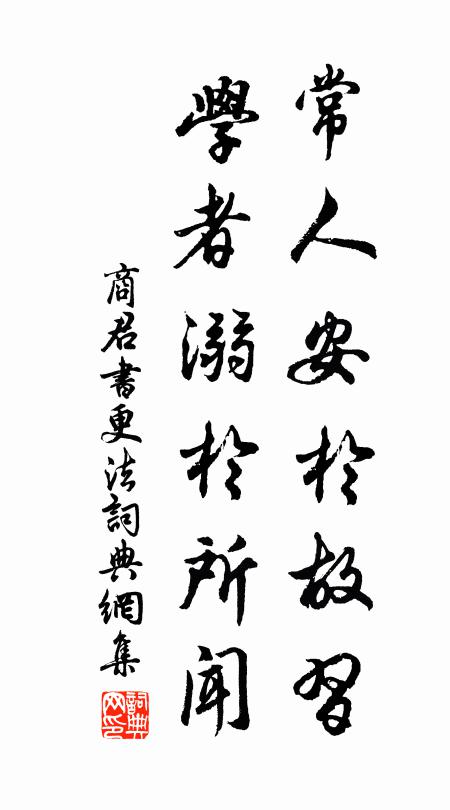 常人安於故習
學者溺於所聞
商君書更法詞典網集
詞典网印